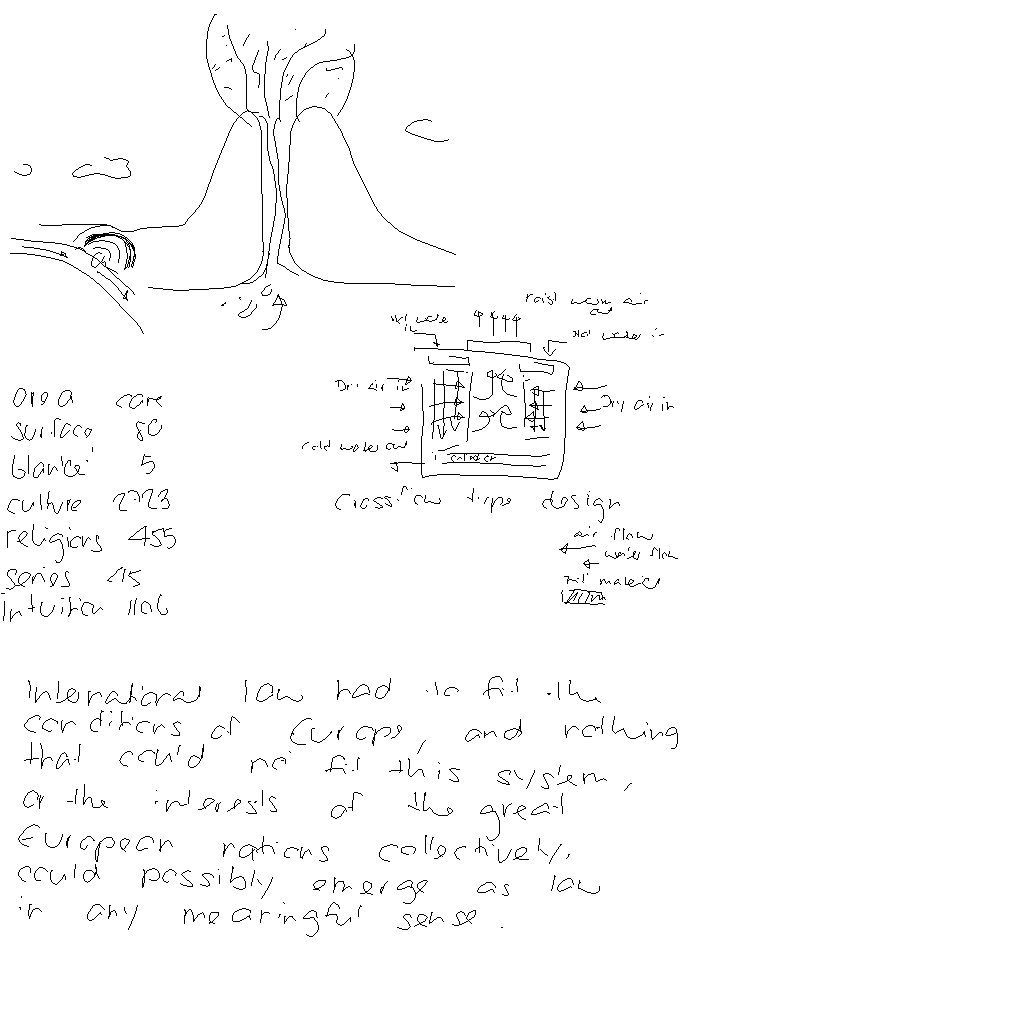 moist warm air
out
hot water
in
hot water in
Dry air in
Dry air in
cold water out
Crossflow type design
air flow
water flow
fill material
area care
surface 80
blanket 5
culture 2723
religions 455
series 45
Intuition 1106
International law had to fit the
conditions of Europe, and nothing
that could not fit this system,
or the interests of the great
European nations collectively,
could possibly emerge as law
in any meaningful sense.